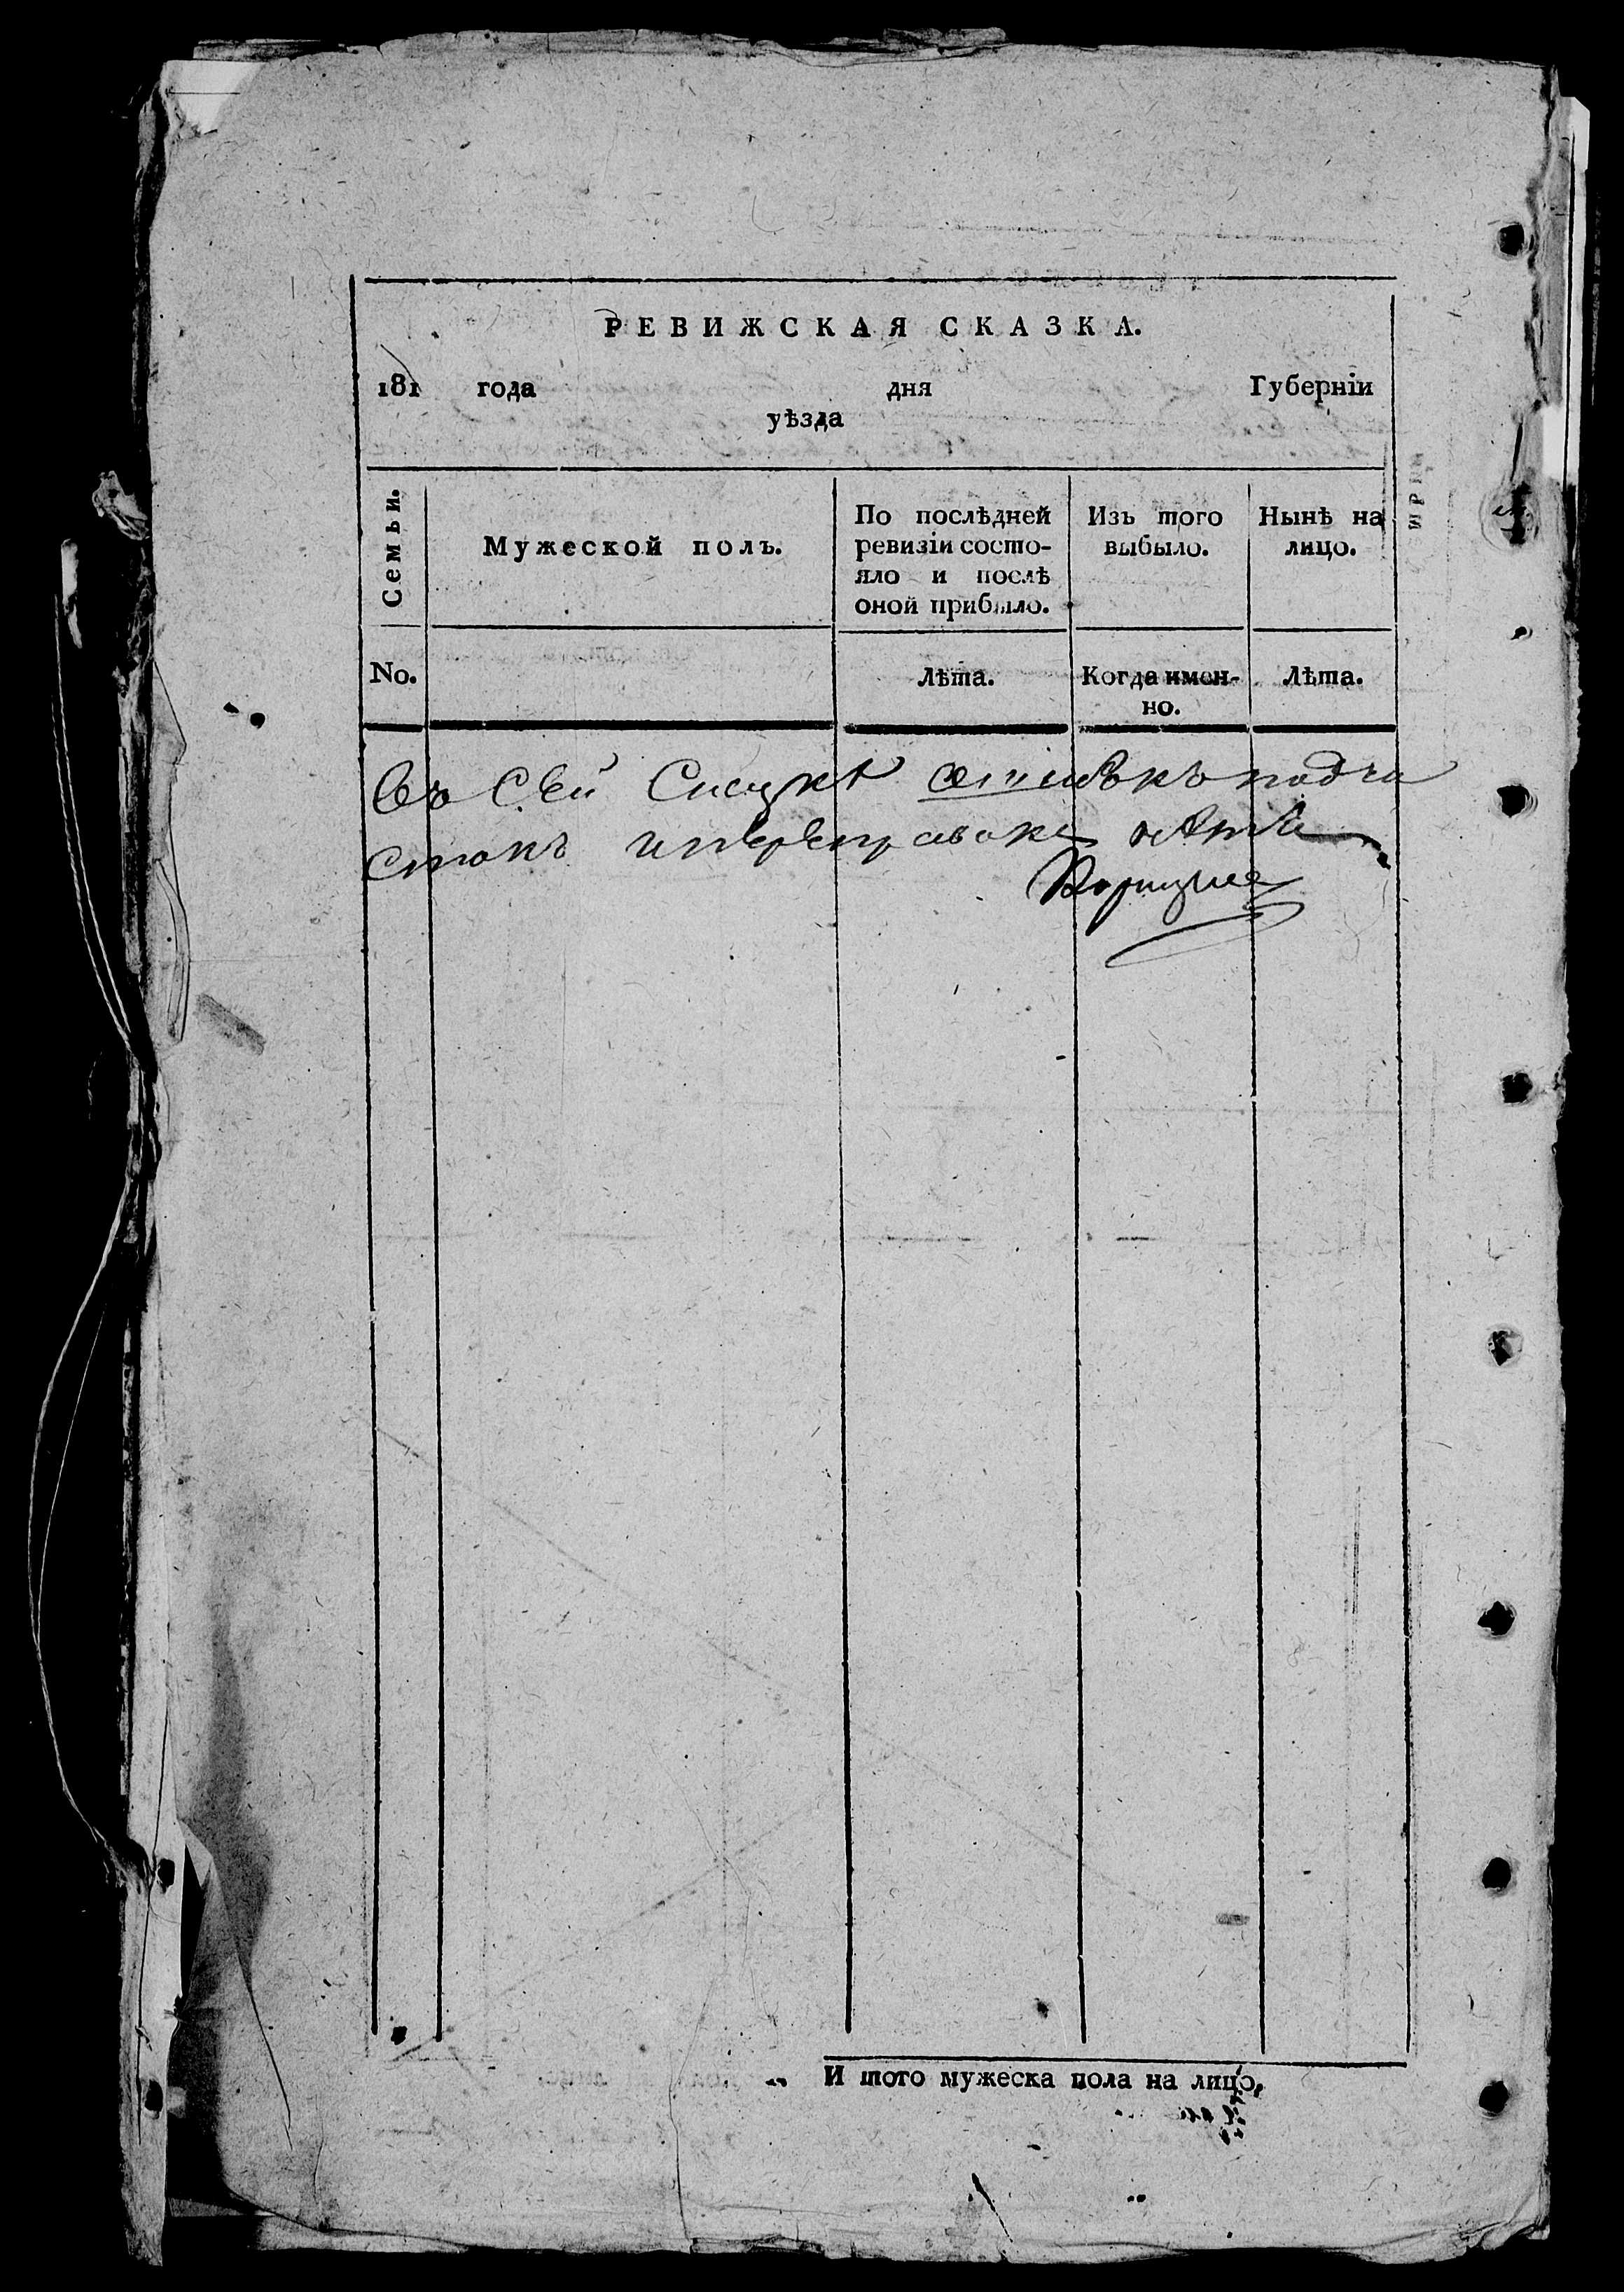 РЕВИЖСКАЯ СКАЗКА.
181 года дня Губерніи
уѣзда
Семьи.
Мужеской полъ.
По послѣдней
ревизіи состо-
яло и послѣ
оной прибыло.
Изъ того
выбыло.
Нынѣ на
лицо.
No.
Лѣта.
Когда имен-
но.
Лѣта.
Въ Сей подчи
стокъ иперепровокъ нѣтъ
И того мужеска пола на лицо,